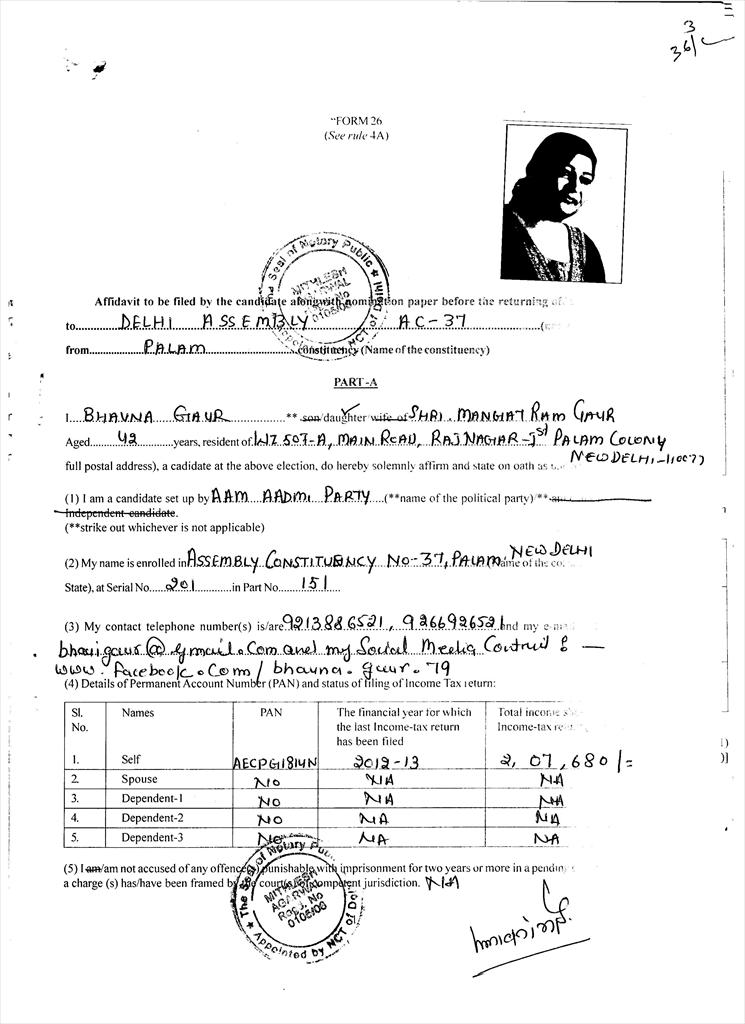 3
36/
"FORM 26
(See rule 4A)
The Seal of Notary Public
MITHLESH
AGARWAL
0106/06
Appointed NCT of Delhi
Affidavit to be filed by the candidate alongwith nomination paper before the returning
to DELHI ASSEMBLY AC-37
from PALAM constituency (Name of the constituency)
PART-A
I BHAVNA GAUR ** son/daughter/wife of SHRI. MANGAT RAM GAUR
Aged 42 years, resident of WZ 507-A, MAIN ROAD, RAJ NAGAR-Ist PALAM COLONY
NEW DELHI-110077
full postal address), a cadidate at the above election, do hereby solemnly affirm and state on oath as
(1) I am a candidate set up by AAM AADMI PARTY (**name of the political party)/**
Independent candidate.
(**strike out whichever is not applicable)
(2) My name is enrolled in ASSEMBLY CONSTITUENCY NO-37, PALAM NEW DELHI (Name of the
State), at Serial No. 201 in Part No. 151
(3) My contact telephone number(s) is/are 9213886521, 9266926521 and my
@gmail.com and my Social Media
www.facebook.com/bhavna.gaur.79
(4) Details of Permanent Account Number (PAN) and status of filing of Income Tax return:
Sl. No. Names PAN The financial year for which the last Income-tax return has been filed Total income Income-tax
1. Self AECPG1814N 2012-13 2,07,680/=
2. Spouse NO NA NA
3. Dependent-1 NO NA NA
4. Dependent-2 NO NA NA
5. Dependent-3 NO NA NA
(5) I am/am not accused of any offence punishable with imprisonment for two years or more in a pending
a charge (s) has/have been framed by the court(s) of competent jurisdiction. NA
The Seal of Notary Pub
MITHLESH
AGARWAL
Reg. No
0106/06
Appointed by NCT of Del